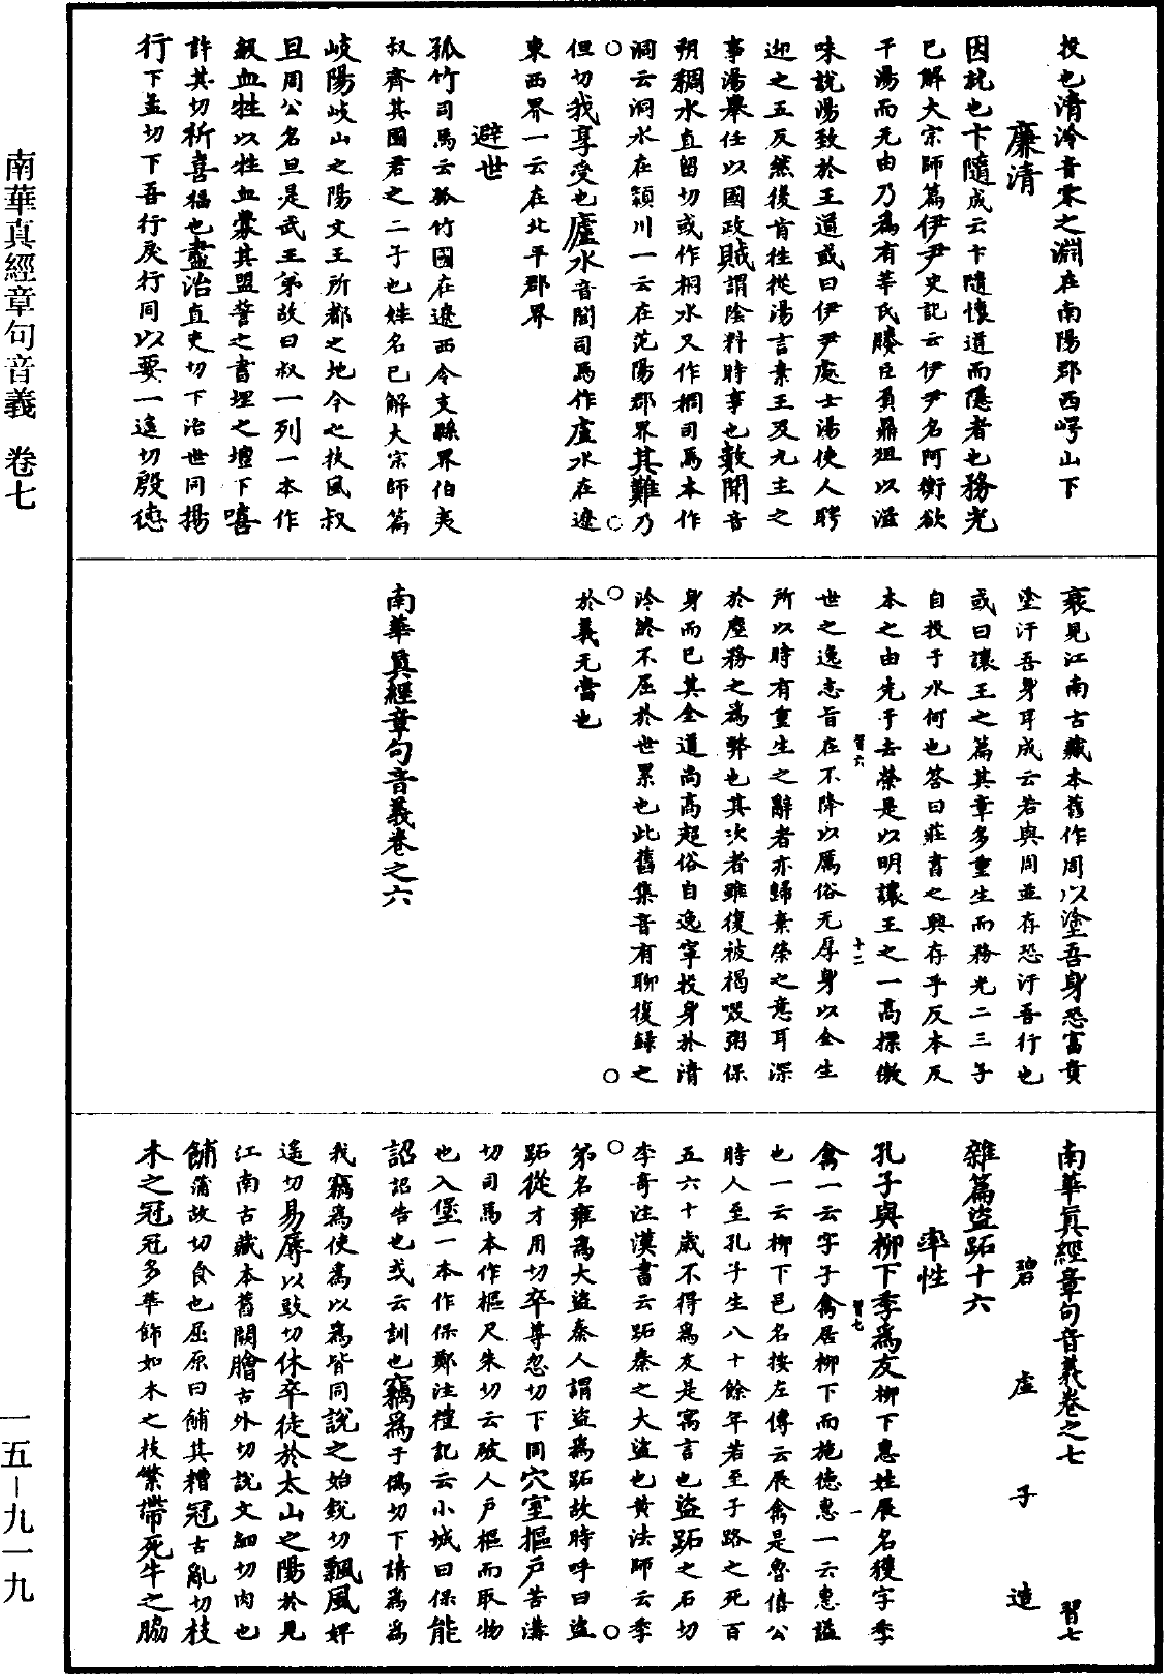 投也清泠音零之淵在南陽郡西崿山下
廉清
因託也卞隨成云卞隨懷道而隱者也務光
已解大宗師篇伊尹史記云伊尹名阿衡欲
干湯而无由乃為有莘氏媵臣負鼎俎以滋
味說湯致於王道或曰伊尹處士湯使人聘
迎之五反然後肯往從湯言素王及九主之
事湯舉任以國政賊謂陰料時事也數聞音
朔稠水直留切或作桐水又作桐司馬本作
洞云洞水在潁川一云在范陽郡界其難乃
但切我享受也廬水音閭司馬作盧水在遼
東西界一云在北平郡界
避世
孤竹司馬云孤竹國在遼西令支縣界伯夷
叔齊其國君之二子也姓名已解大宗師篇
岐陽岐山之陽文王所都之地今之扶風叔
旦周公名旦是武王弟故曰叔一列一本作
級血牲以牲血釁其盟誓之書埋之壇下嘻
許其切祈喜福也盡治直吏切下治世同揚
行下孟切下吾行戾行同以要一遙切殷德
衰見江南古藏本舊作周以塗吾身恐富貴
塗汙吾身耳成云若與周並存恐汙吾行也
或曰讓王之篇其章多重生而務光二三子
自投于水何也答曰莊書之興存乎反本反
本之由先乎去榮是以明讓王之一高摽傲
世之逸志旨在不降以厲俗无厚身以全生
所以時有重生之辭者亦歸棄榮之意耳深
於塵務之為弊也其次者雖復被褐啜粥保
身而已其全道尚高超俗自逸寧投身於清
泠終不屈於世累也此舊集音有聊復錄之
於義无當也
南華真經章句音義卷之六
習六
十二
南華真經章句音義卷之七 習七
碧虛子造
雜篇盜跖十六
率性
孔子與柳下季為友柳下惠姓展名獲字季
禽一云字子禽居柳下而施德惠一云惠謚
也一云柳下邑名按左傳云展禽是魯僖公
時人至孔子生八十餘年若至子路之死百
五六十歲不得為友是寓言也盜跖之石切
李奇注漢書云跖秦之大盜也黃法師云季
弟名雍為大盜秦人謂盜為跖故時呼曰盜
跖從才用切卒尊忽切下同穴室樞戶苦溝
切司馬本作樞尺朱切云破人戶樞而取物
也入堡一本作保鄭注禮記云小城曰保能
詔詔告也或云訓也竊為于偽切下請為為
我竊為使為以為皆同說之始銳切飄風婢
遙切易辱以豉切休卒徒於太山之陽於見
江南古藏本舊闕膾古外切說文細切肉也
餔蒲故切食也屈原曰餔其糟冠古亂切枝
木之冠冠多華飾如木之枝繁帶死牛之脇
習七
一
南華真經章句音義 卷七
一五—九一九